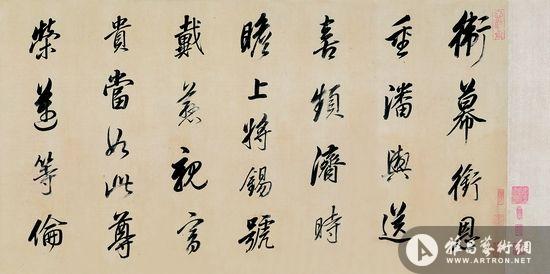 衛幕銜恩
重潘輿送
喜頻濟時
瞻上將錫號
戴慈親富
貴當如此尊
榮邁等倫
雅昌藝術網
WWW.ARTRON.NET